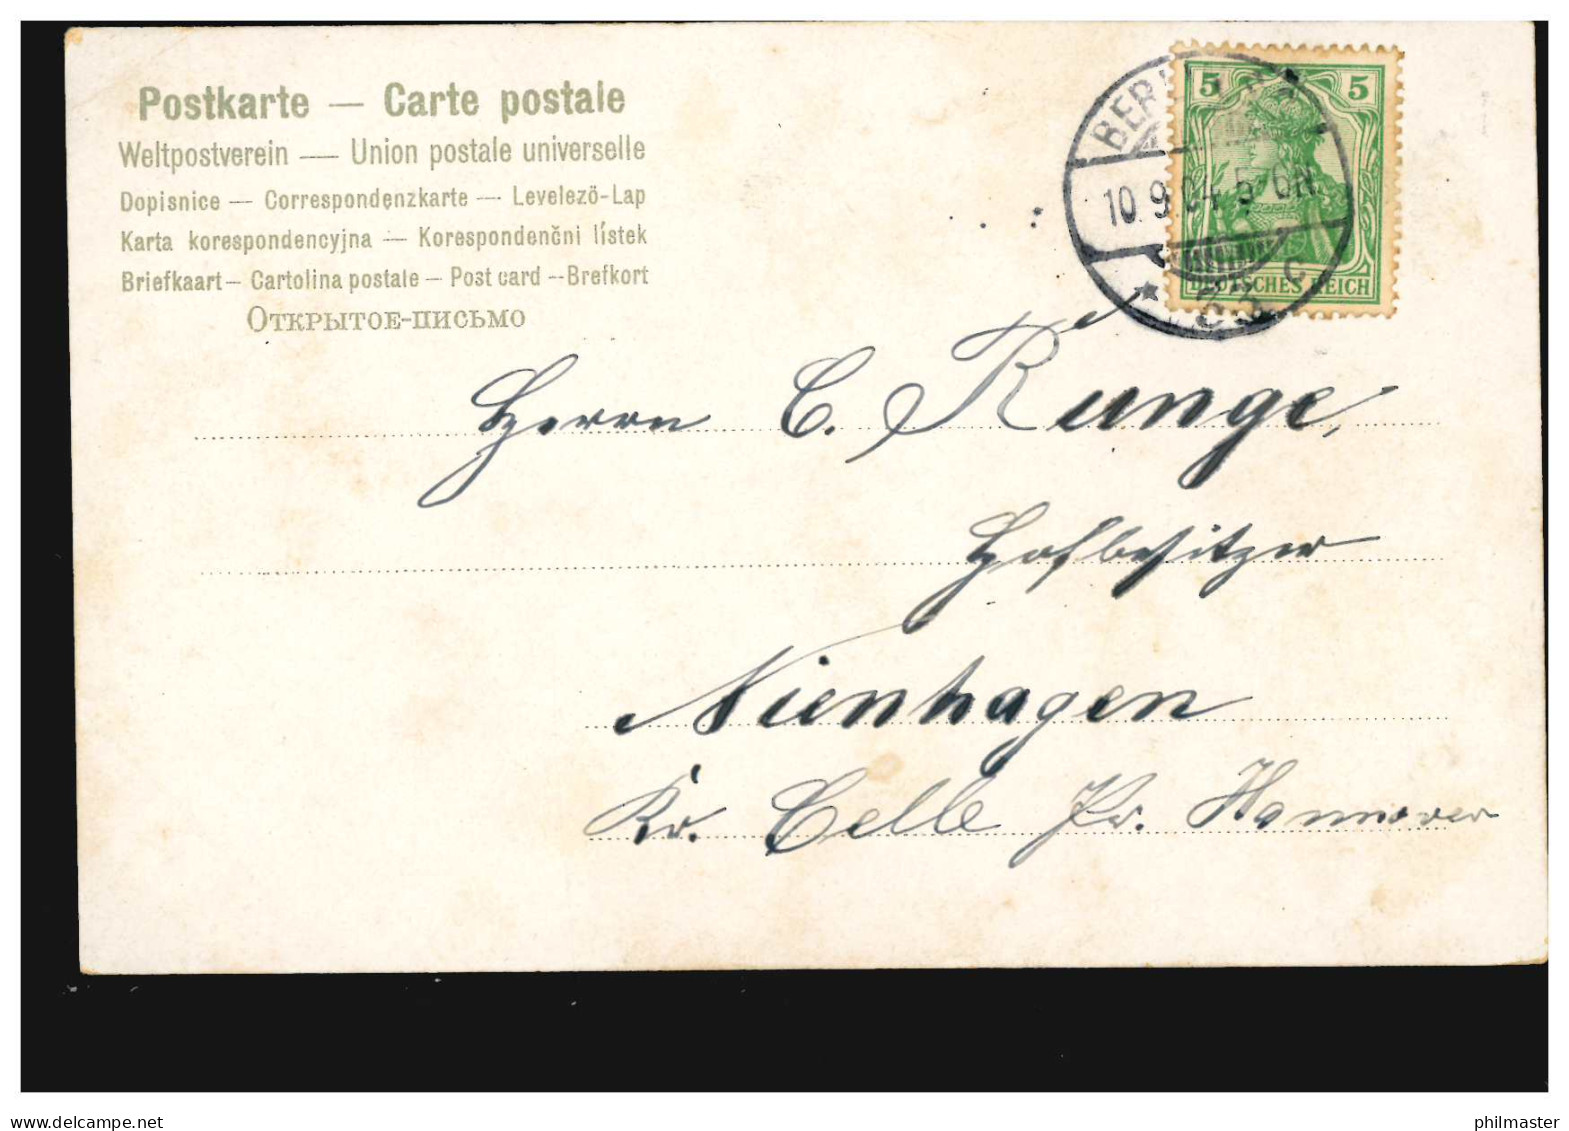 Postkarte — Carte postale
Weltpostverein — Union postale universelle
Dopisnice — Correspondenzkarte — Levelező-Lap
Karta korespondencyjna — Korespondenčni lístek
Briefkaart — Cartolina postale — Post card — Brefkort
Открытое-письмо
5 5
10.9.04. 5-6N.
DEUTSCHES REICH
* 33 c
Herrn C. Runge,
Hofbesitzer
Nienhagen
Kr. Celle Pr. Hannover
www.delcampe.net
philmaster